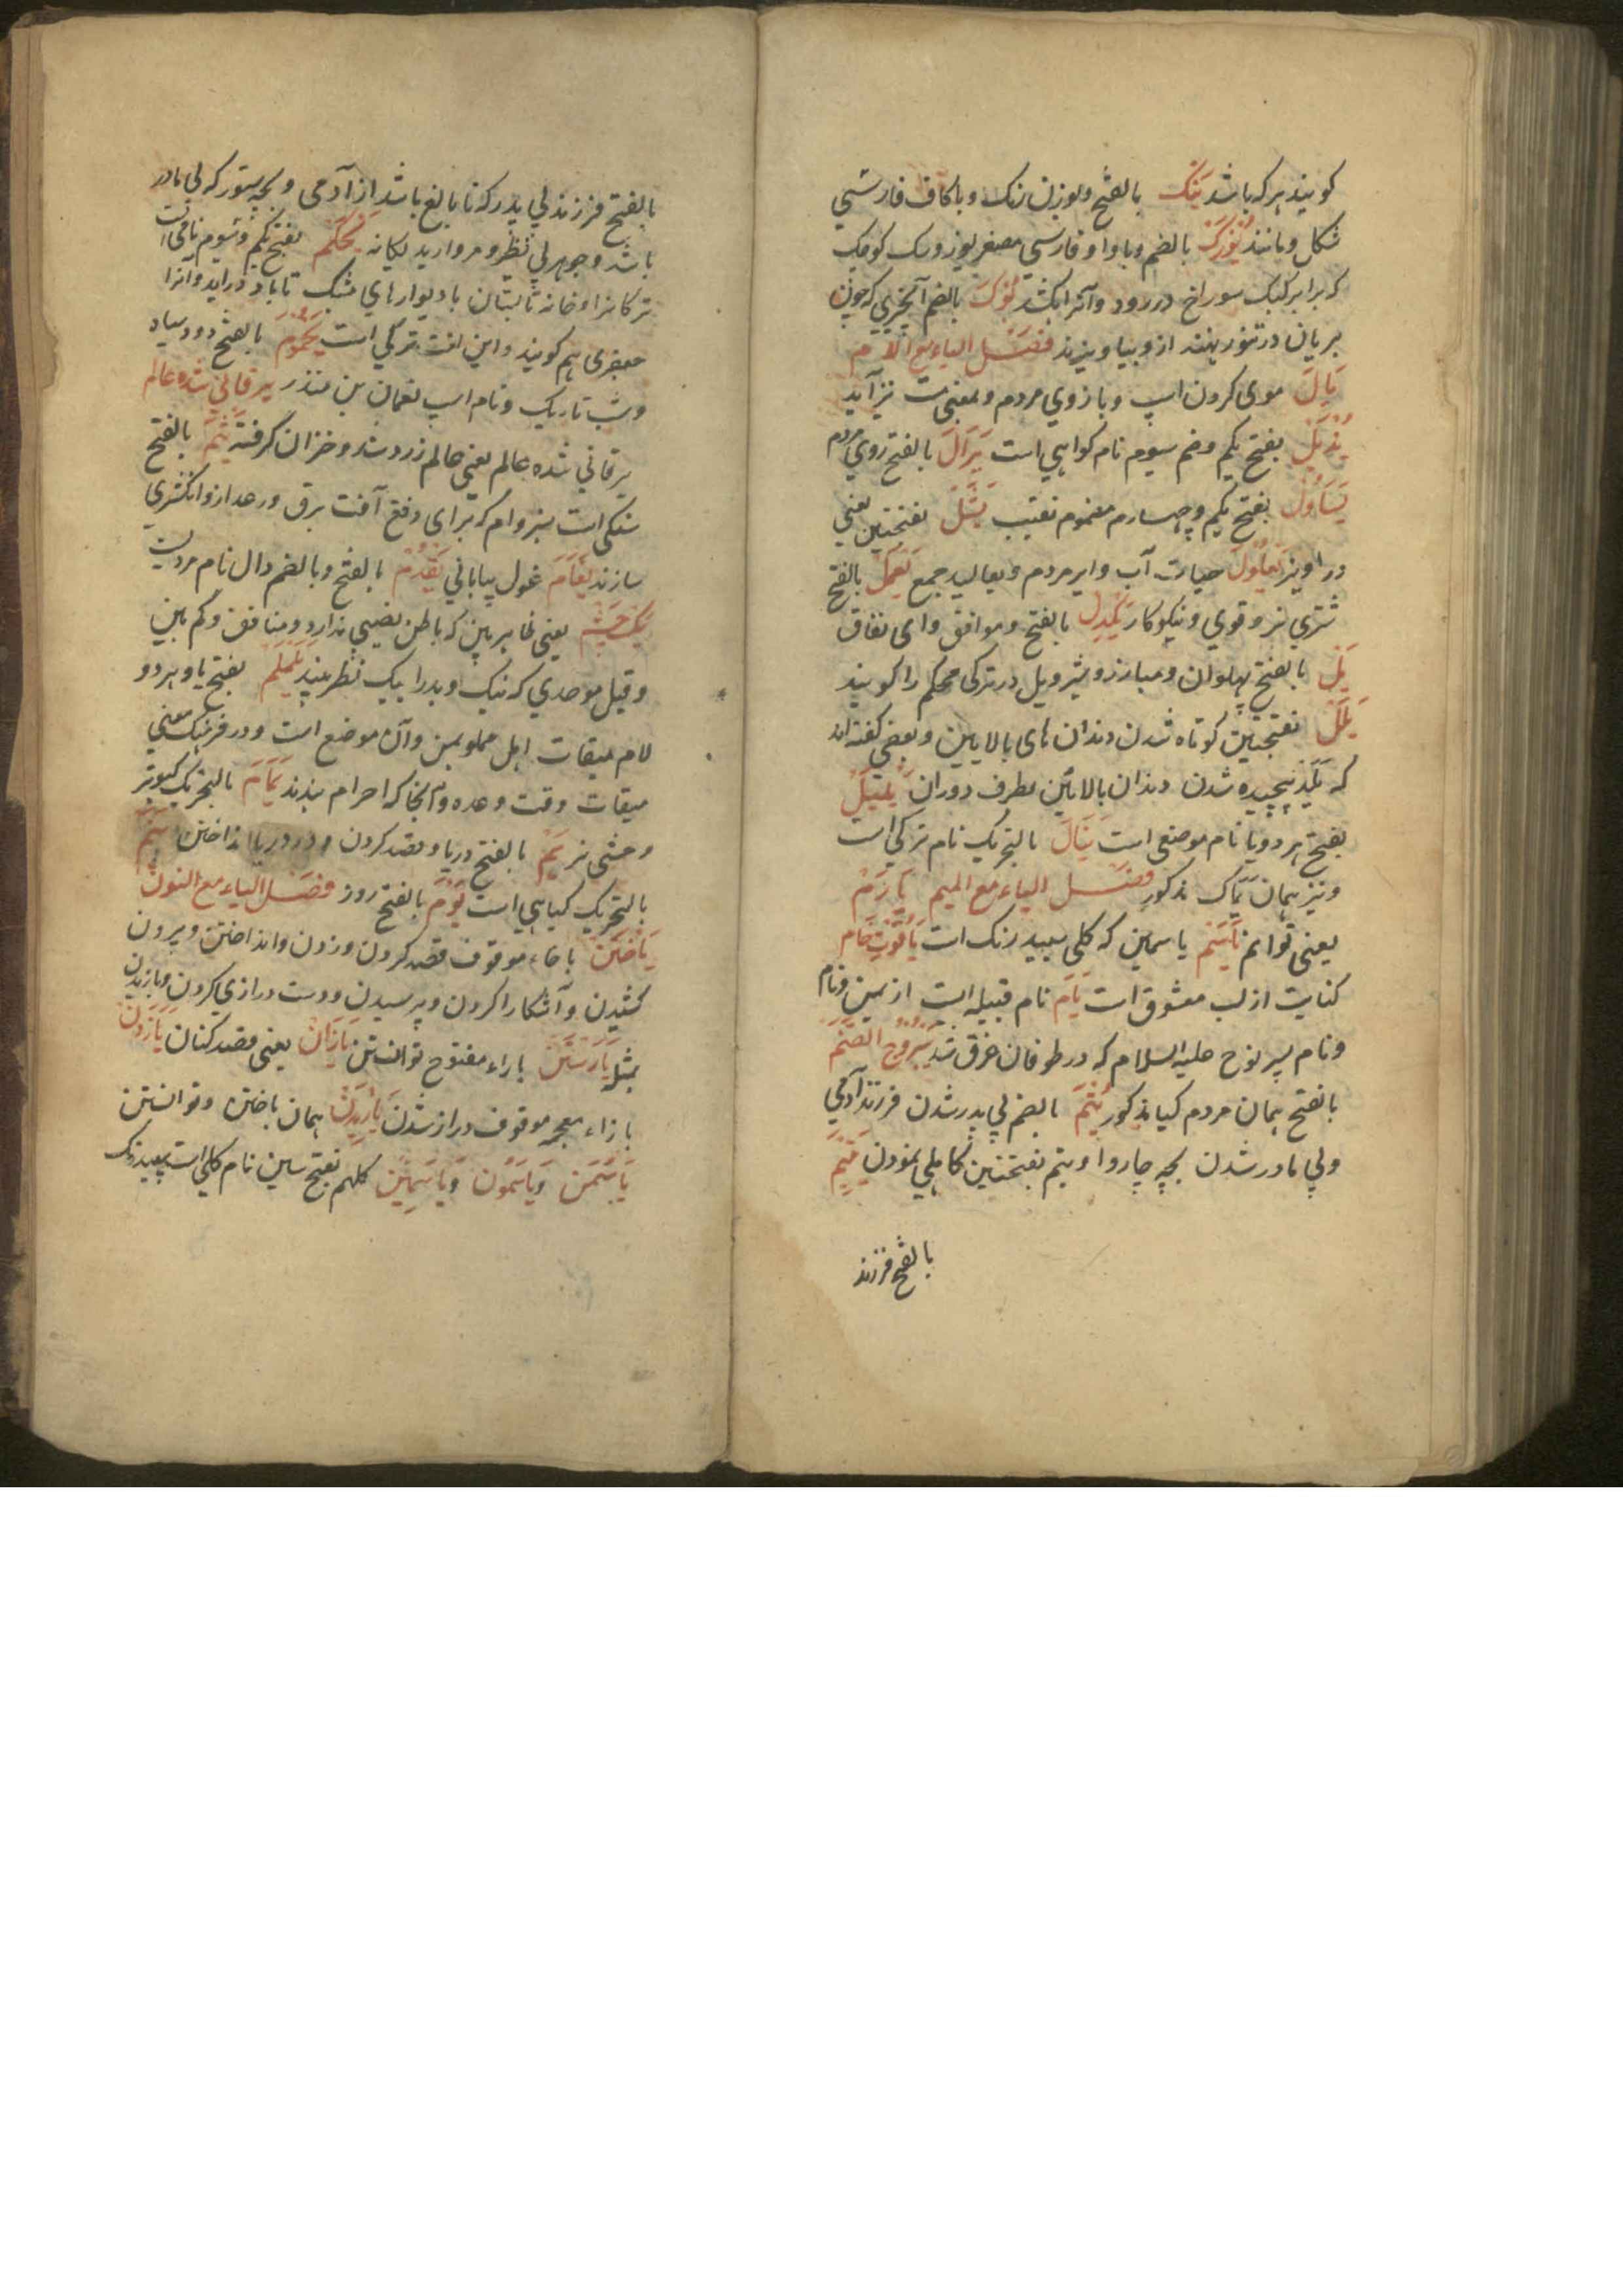 کویند هرکه باشد ینک بالفتح و بوزن زنک و با کاف فارسی
شکل و مانند یوزک بالضم و با واو فارسی مصغر یوز و سک کوچک
که برابر کبک سوراخ در رود و آنرا بکشد بالضم آبخیزی که چون
بریان در تنور نهند ازو بیاویزند فصل الیاء مع اللام
یال موی کردن اسپ و بازوی مردم و بمعنی نیز آید
بفتح یکم و ضم سیوم نام کواهی است یرال بالفتح روی مردم
یساول بفتح یکم و چهارم مضموم نقیب یشل بفتحتین یعنی
در اویز یعلول حیات آب و ابر مردم و یعالیل جمع یعمل بالفتح
شتری نر و قوی و نیکو کار یکدل بالفتح و موافق و ای نفاق
یل بالفتح پهلوان و مبارز و شیر و یل در ترکی محکم را کویند
یلل بفتحتین کوتاه شدن دندان های بالایین و بعضی کفته اند
که پیچیده شدن دندان بالائین بطرف دوران یلیل
بفتح هر دو یا نام موضعی است ینال بالتحریک نام ترکی است
و نیز همان یماک مذکور فصل الیاء مع المیم یارم
یعنی توانم یاسم یاسمین که کلی سپید رنک است یاقوت خام
کنایت از لب معشوق است یام نام قبیله است از یمن و نام
و نام پسر نوح علیه السلام که در طوفان غرق شد یبروح الصنم
بالفتح همان مردم کیا مذکور یتم بالضم بی پدر شدن فرزند آدمی
و بی مادر شدن بچه چاروا و یتم بفتحتین کاهلی نمودن یتیم
بالفتح فرزند
بالفتح فرزند بی پدر که نا بالغ باشد از آدمی و بچه ستور که بی مادر
باشد و جوهر بی نظیر و مروارید یکانه یحکم بفتح یکم و سیوم نام
ترکانرا و خانه تابستان با دیوارهای مشبک تا باد درآید و آنرا
جعفری هم کویند و این لغت ترکی است یحموم بالفتح دود سیاه
و شب تاریک و نام اسپ نعمان بن منذر یرقانی شده عالم
یرقانی شده عالم یعنی عالم زرد شد و خزان کرفته یشم بالفتح
سنکی است سبز وام که برای دفع آفت برق و رعد ازو انکشتری
سازند یغام غول بیابانی یقدم بالفتح و بالضم دال نام مردیست
یک چشم یعنی ظاهر بین که باطن نصیبی ندارد و منافق و کم بین
و قیل موحدی که نیک و بد را بیک نظر بیند یلملم بفتح یا و هر دو
لام میقات اهل یمن وآن موضع است و در فرهنک معنی
میقات وقت و وعده و آنجا که احرام بندند یمام بالتحریک کبوتر
وحشی نر یم بالفتح دریا و قصد کردن و در دریا انداختن
بالتحریک کیاهی است یوم بالفتح روز فصل الیاء مع النون
یاختن با خاء موقوف قصد کردن و زدن و انداختن و بیرون
کشیدن و آشکارا کردن و پرسیدن و دست درازی کردن و یازیدن
مثله یارستن با راء مفتوح توانستن یازان یعنی قصد کنان یازدن
با زاء معجمه موقوف دراز شدن یازیدن همان یاختن و توانستن
یاسمن و یاسمون و یاسمین کلهم بفتح سین نام کلی است سپید رنک